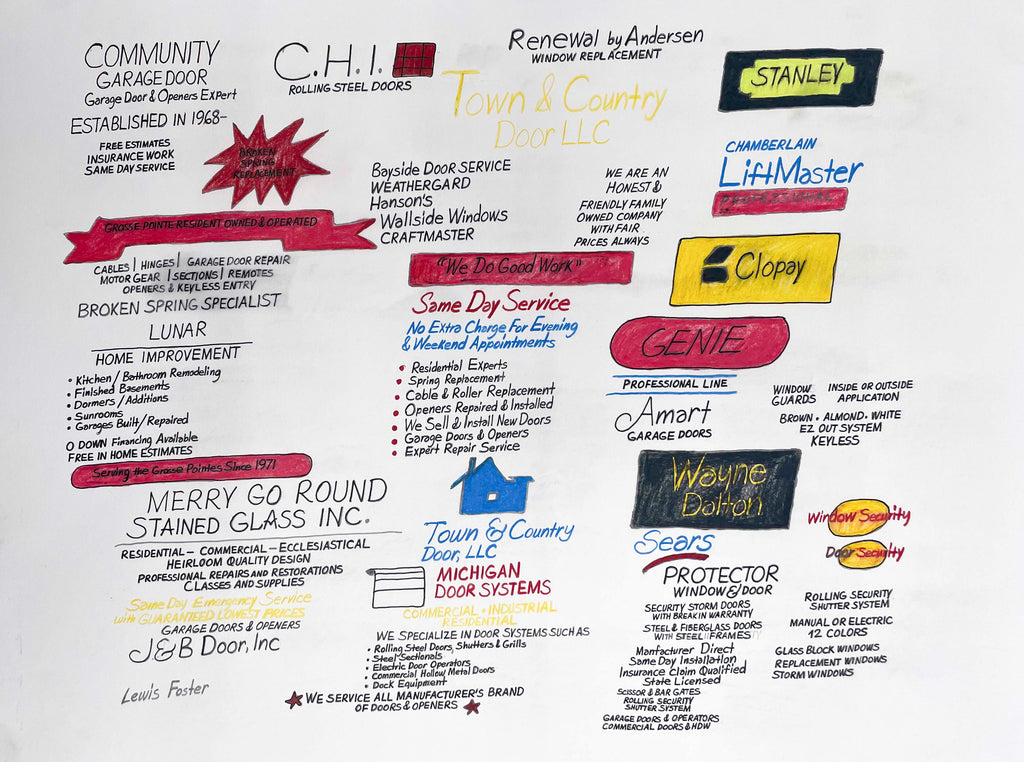 COMMUNITY
GARAGE DOOR
Garage Door & Openers Expert
ESTABLISHED IN 1968-
FREE ESTIMATES
INSURANCE WORK
SAME DAY SERVICE
BROKEN
SPRING
REPLACEMENT
GROSSE POINTE RESIDENT OWNED & OPERATED
CABLES | HINGES | GARAGE DOOR REPAIR
MOTOR GEAR | SECTIONS | REMOTES
OPENERS & KEYLESS ENTRY
BROKEN SPRING SPECIALIST
LUNAR
HOME IMPROVEMENT
• Kitchen / Bathroom Remodeling
• Finished Basements
• Dormers / Additions
• Sunrooms
• Garages Built / Repaired
0 DOWN Financing Available
FREE IN HOME ESTIMATES
Serving the Grosse Pointes Since 1971
MERRY GO ROUND
STAINED GLASS INC.
RESIDENTIAL – COMMERCIAL – ECCLESIASTICAL
HEIRLOOM QUALITY DESIGN
PROFESSIONAL REPAIRS AND RESTORATIONS
CLASSES AND SUPPLIES
Same Day Emergency Service
with GUARANTEED LOWEST PRICES
GARAGE DOORS & OPENERS
J&B Door, Inc
Lewis Foster
C.H.I.
ROLLING STEEL DOORS
Renewal by Andersen
WINDOW REPLACEMENT
Town & Country
Door LLC
Bayside DOOR SERVICE
WEATHERGARD
Hanson's
Wallside Windows
CRAFTMASTER
WE ARE AN
HONEST &
FRIENDLY FAMILY
OWNED COMPANY
WITH FAIR
PRICES ALWAYS
"We Do Good Work"
Same Day Service
No Extra Charge For Evening
& Weekend Appointments
• Residential Experts
• Spring Replacement
• Cable & Roller Replacement
• Openers Repaired & Installed
• We Sell & Install New Doors
• Garage Doors & Openers
• Expert Repair Service
Town & Country
Door, LLC
MICHIGAN
DOOR SYSTEMS
COMMERCIAL • INDUSTRIAL
RESIDENTIAL
WE SPECIALIZE IN DOOR SYSTEMS SUCH AS
• Rolling Steel Doors, Shutters & Grills
• Steel Sectionals
• Electric Door Operators
• Commercial Hollow Metal Doors
• Dock Equipment
WE SERVICE ALL MANUFACTURER'S BRAND
OF DOORS & OPENERS
STANLEY
CHAMBERLAIN
LiftMaster
PROFESSIONAL
Clopay
GENIE
PROFESSIONAL LINE
Amart
GARAGE DOORS
WINDOW
GUARDS
INSIDE OR OUTSIDE
APPLICATION
BROWN • ALMOND • WHITE
EZ OUT SYSTEM
KEYLESS
Wayne
Dalton
Sears
Window Security
Door Security
PROTECTOR
WINDOW & DOOR
SECURITY STORM DOORS
WITH BREAK IN WARRANTY
STEEL & FIBERGLASS DOORS
WITH STEEL FRAMES
Manfacturer Direct
Same Day Installation
Insurance Claim Qualified
State Licensed
SCISSOR & BAR GATES
ROLLING SECURITY
SHUTTER SYSTEM
GARAGE DOORS & OPERATORS
COMMERCIAL DOORS & HDW
ROLLING SECURITY
SHUTTER SYSTEM
MANUAL OR ELECTRIC
12 COLORS
GLASS BLOCK WINDOWS
REPLACEMENT WINDOWS
STORM WINDOWS